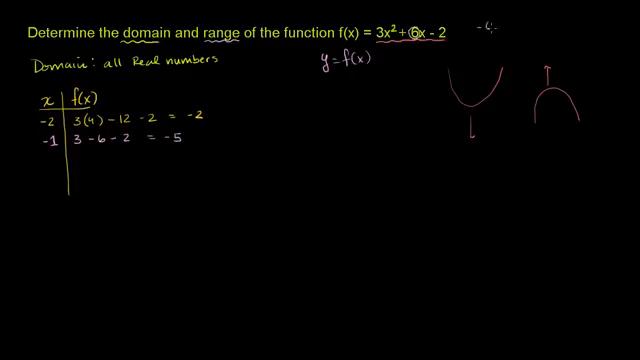 Determine the domain and range of the function f(x) = 3x² + 6x - 2
y = f(x)
Domain: all Real numbers
x f(x)
-2 3(4) - 12 - 2 = -2
-1 3 - 6 - 2 = -5